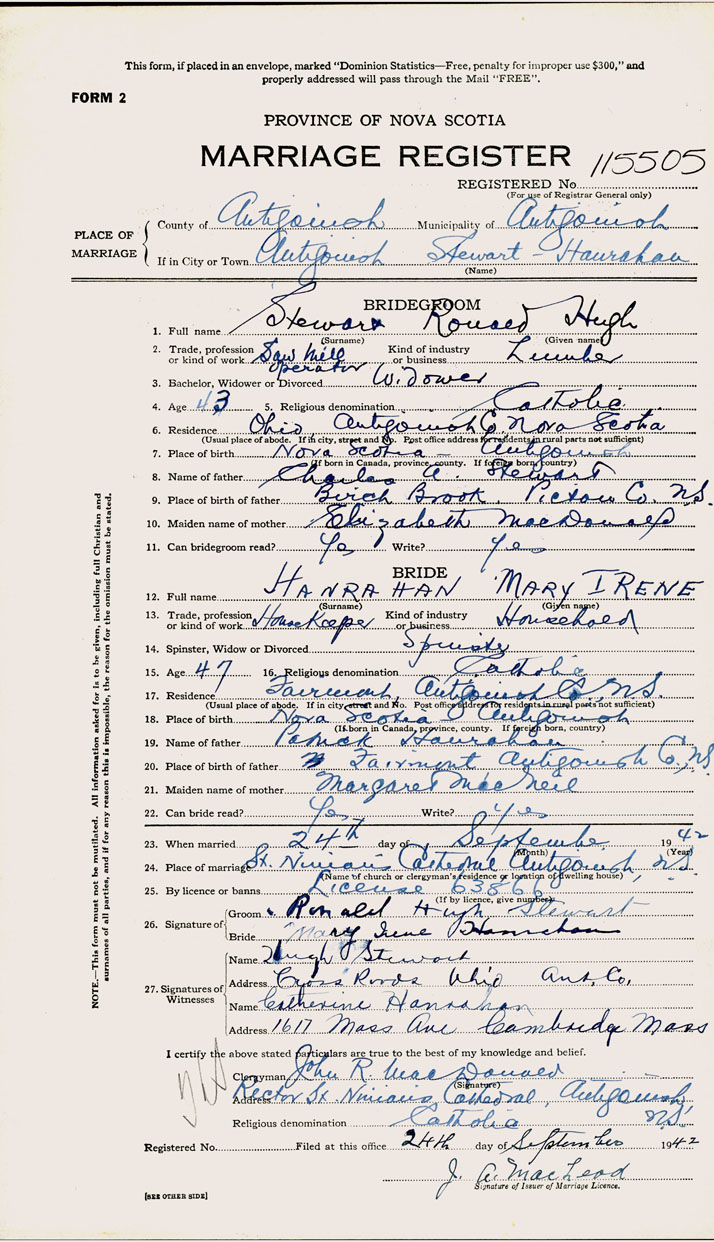 This form, if placed in an envelope, marked "Dominion Statistics—Free, penalty for improper use $300," and
properly addressed will pass through the Mail "FREE".
FORM 2
PROVINCE OF NOVA SCOTIA
MARRIAGE REGISTER 115505
REGISTERED No.
(For use of Registrar General only)
PLACE OF MARRIAGE
County of Antigonish Municipality of Antigonish
If in City or Town Antigonish Stewart - Hanrahan
(Name)
BRIDEGROOM
1. Full name Stewart Ronald Hugh
(Surname) (Given name)
2. Trade, profession or kind of work Saw Mill operator Kind of industry or business Lumber
3. Bachelor, Widower or Divorced Widower
4. Age 43 5. Religious denomination Catholic
6. Residence Ohio, Antigonish Co Nova Scotia
(Usual place of abode. If in city, street and No. Post office address for residents in rural parts not sufficient)
7. Place of birth Nova Scotia - Antigonish
(If born in Canada, province, county. If foreign born, country)
8. Name of father Charles A. Stewart
9. Place of birth of father Birch Brook, Pictou Co. N.S.
10. Maiden name of mother Elizabeth MacDonald
11. Can bridegroom read? Yes Write? Yes
BRIDE
12. Full name HANRAHAN MARY IRENE
(Surname) (Given name)
13. Trade, profession or kind of work HouseKeeper Kind of industry or business Household
14. Spinster, Widow or Divorced Spinster
15. Age 47 16. Religious denomination Catholic
17. Residence Fairmont, Antigonish Co., N.S.
(Usual place of abode. If in city, street and No. Post office address for residents in rural parts not sufficient)
18. Place of birth Nova Scotia - Antigonish
(If born in Canada, province, county. If foreign born, country)
19. Name of father Patrick Hanrahan
20. Place of birth of father Fairmont Antigonish Co, NS
21. Maiden name of mother Margaret MacNeil
22. Can bride read? Yes Write? Yes
23. When married 24th day of September 1942
(Month) (Year)
24. Place of marriage St. Ninian's Cathedral Antigonish, N.S.
(Name of church or clergyman's residence or location of dwelling house)
25. By licence or banns License 63866
(If by licence, give number)
26. Signature of
Groom Ronald Hugh Stewart
Bride Mary Irene Hanrahan
27. Signatures of Witnesses
Name Hugh Stewart
Address Cross Roads Ohio Ant. Co.
Name Catherine Hanrahan
Address 1617 Mass Ave Cambridge Mass
I certify the above stated particulars are true to the best of my knowledge and belief.
Clergyman John R. MacDonald
(Signature)
Address Rector St. Ninian's Cathedral, Antigonish, N.S.
Religious denomination Catholic
Registered No. Filed at this office 24th day of September 1942
J. A. MacLeod
Signature of Issuer of Marriage Licence.
[SEE OTHER SIDE]
NOTE.—This form must not be mutilated. All information asked for is to be given, including full Christian and
surnames of all parties, and if for any reason this is impossible, the reason for the omission must be stated.